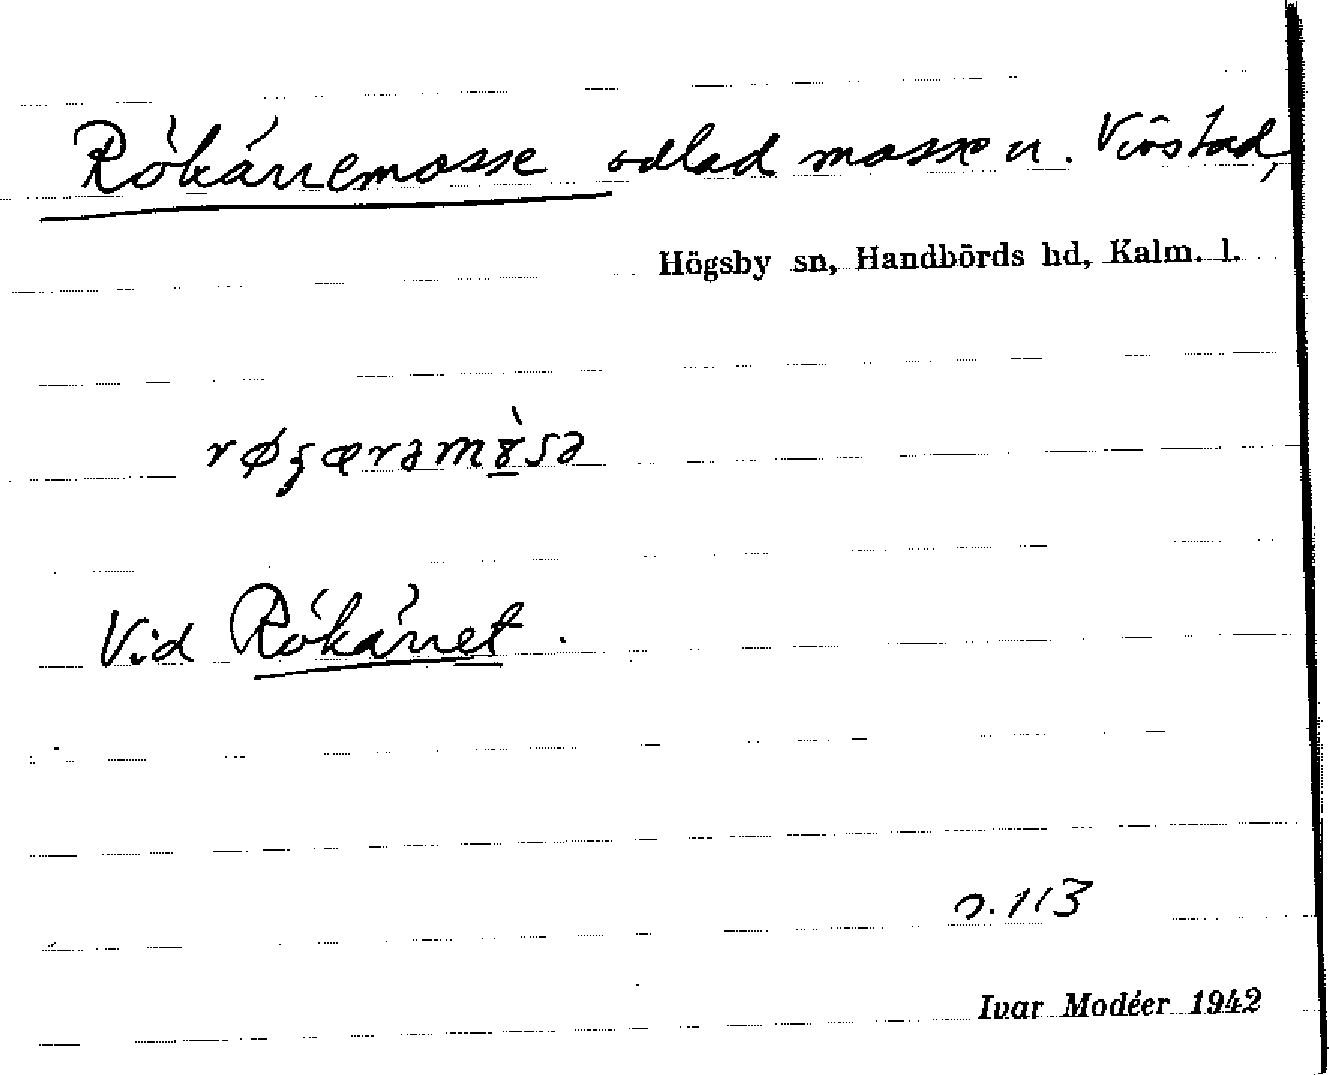 Rökärremosse odlad mosse u. Virstad,
Högsby sn, Handbörds hd, Kalm. l.
Vid Rökärret.
s. 113
Ivar Modéer 1942